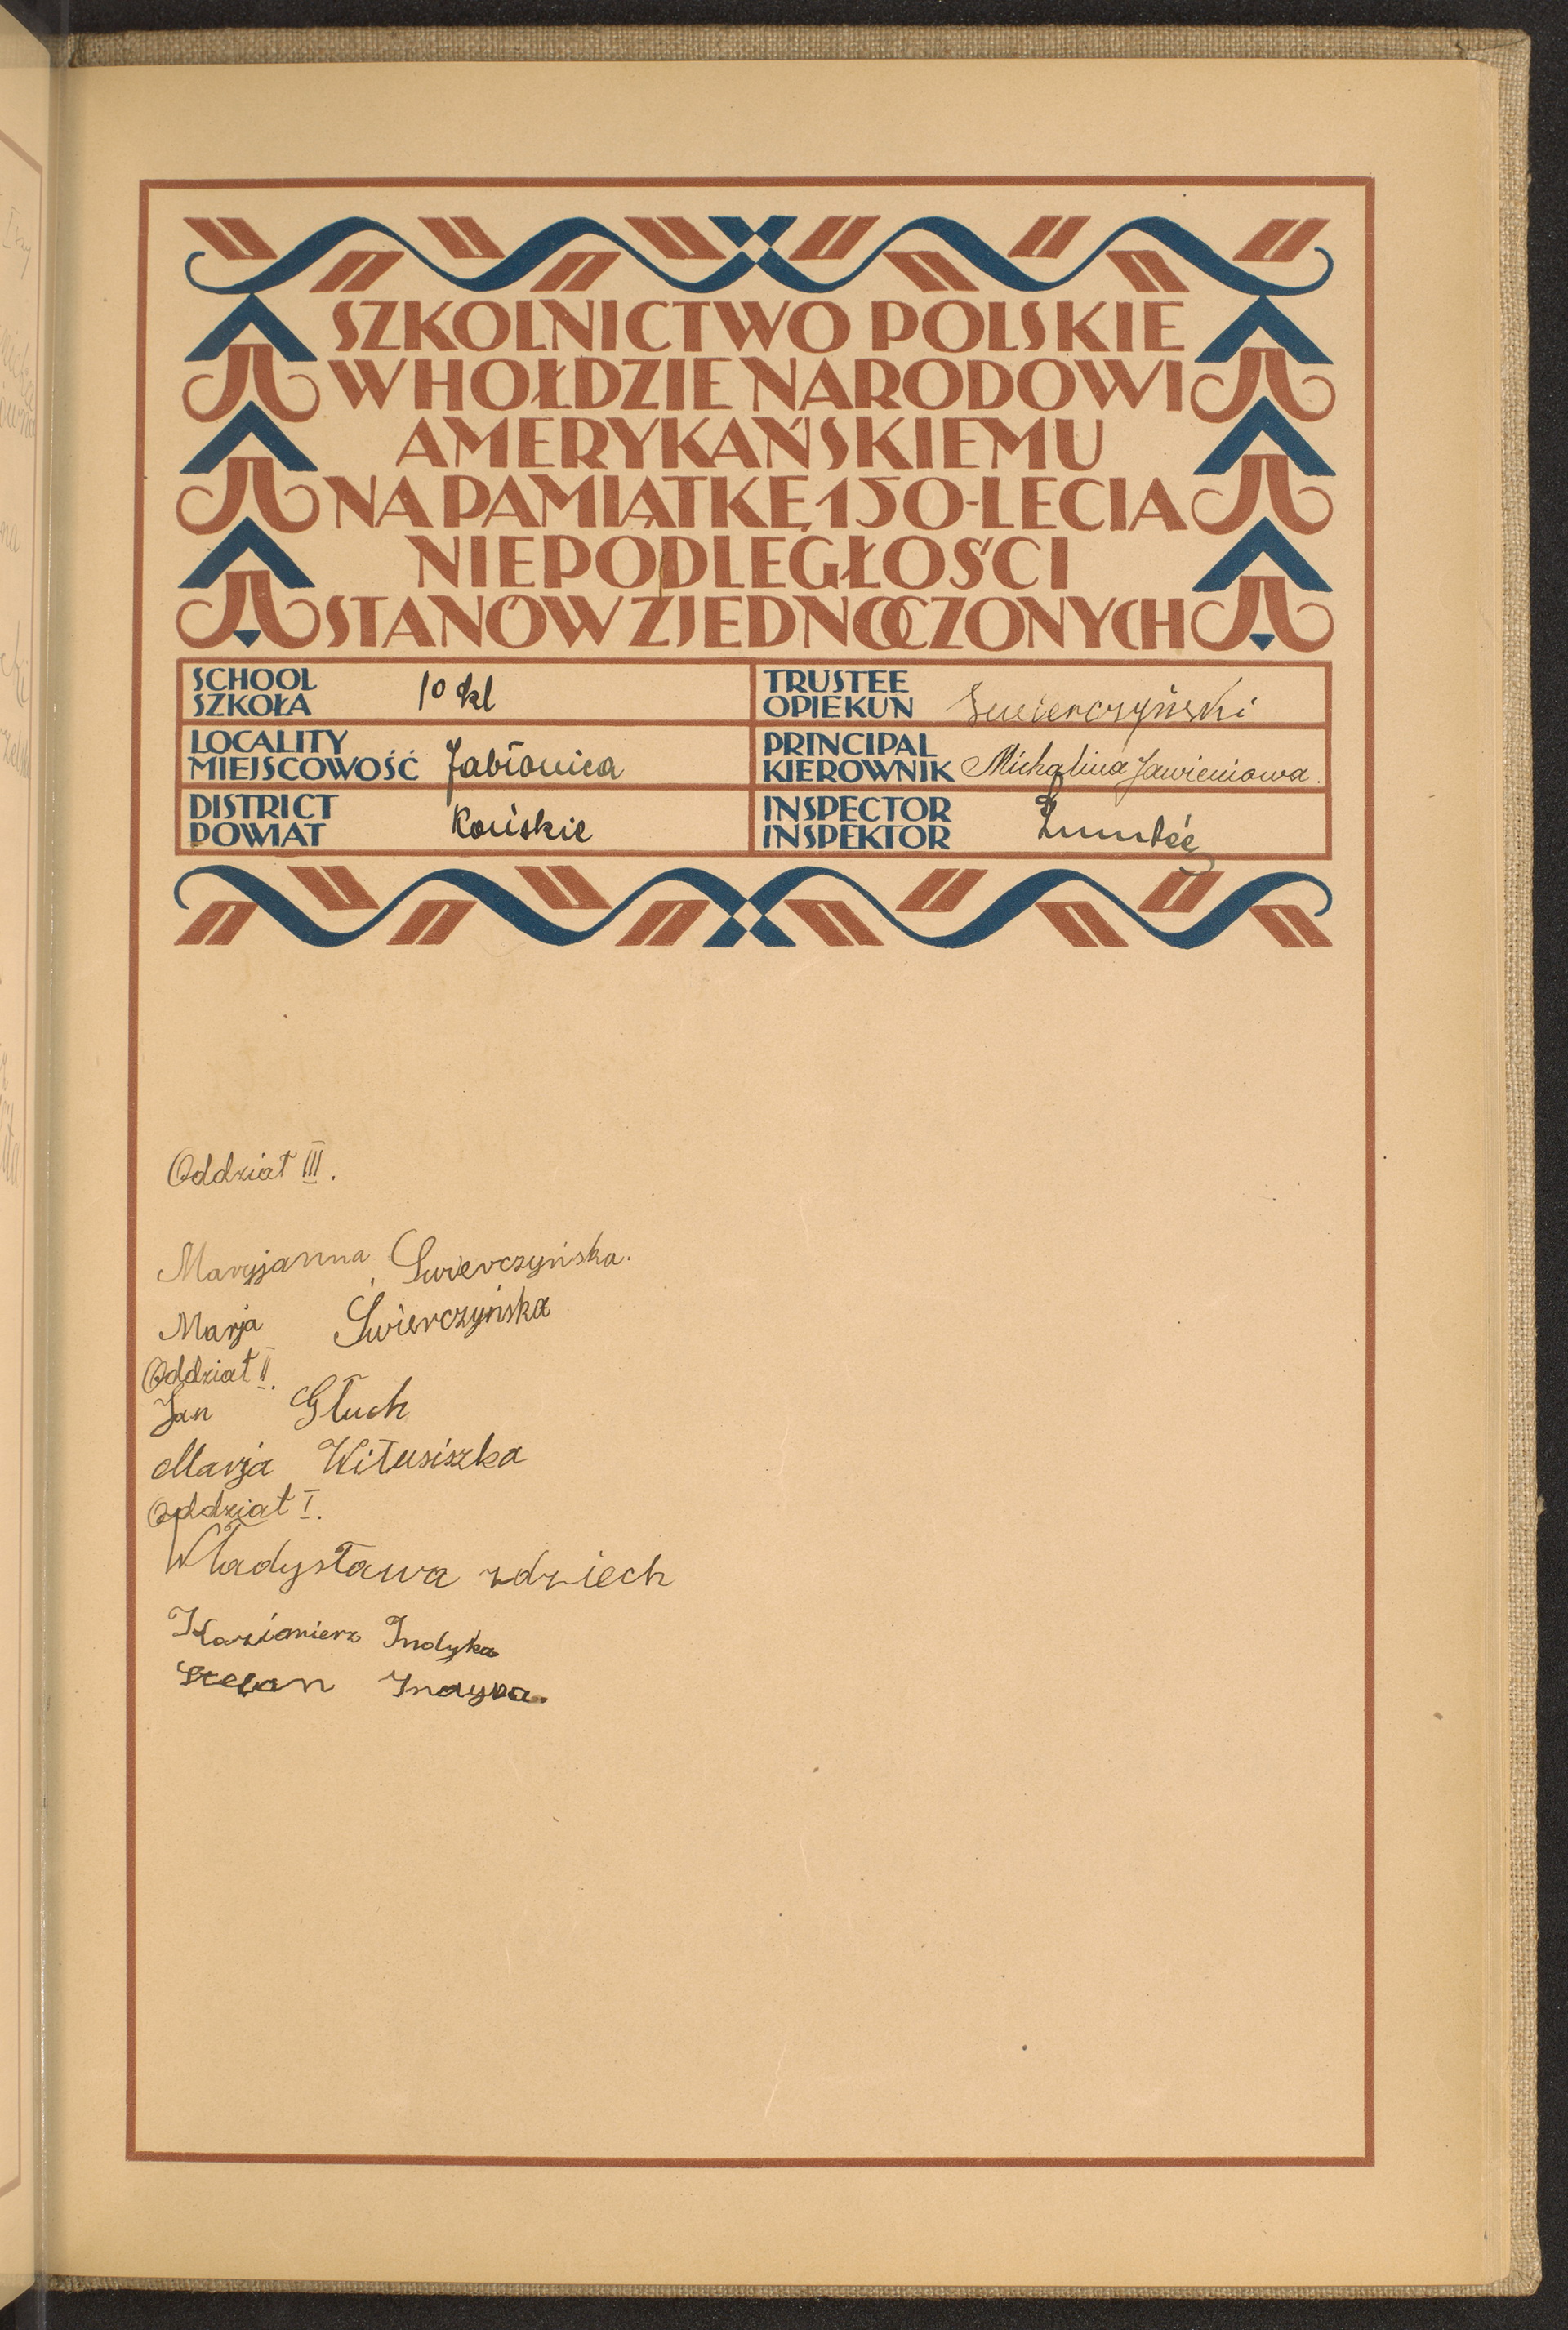 SZKOLNICTWO POLSKIE
W HOŁDZIE NARODOWI
AMERYKAŃSKIEMU
NA PAMIĄTKĘ 150-LECIA
NIEPODLEGŁOŚCI
STANÓW ZJEDNOCZONYCH
SCHOOL
SZKOŁA 10 kl
TRUSTEE
OPIEKUN Swierczyński
LOCALITY
MIEJSCOWOŚĆ Jabłonica
PRINCIPAL
KIEROWNIK Michalina Jawieniowa.
DISTRICT
POWIAT Końskie
INSPECTOR
INSPEKTOR
Oddział III.
Maryjanna Swierczyńska.
Marja Świerczyńska
Oddział II.
Jan Głuch
Marja Witusiszka
Oddział I.
Władysława zdziech
Kazimierz Indyka
Stefan Indyka.